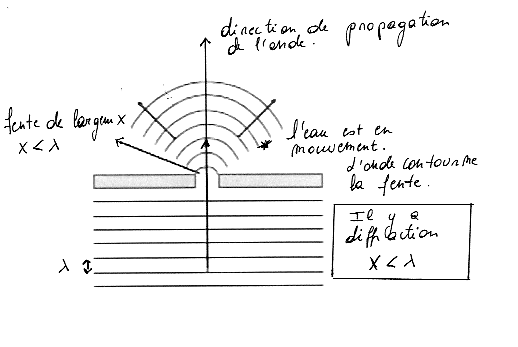 direction de propagation
de l'onde.
fente de largeur x
x < λ
l'eau est en
mouvement.
l'onde contourne
la fente.
Il y a
diffraction
x < λ
λ